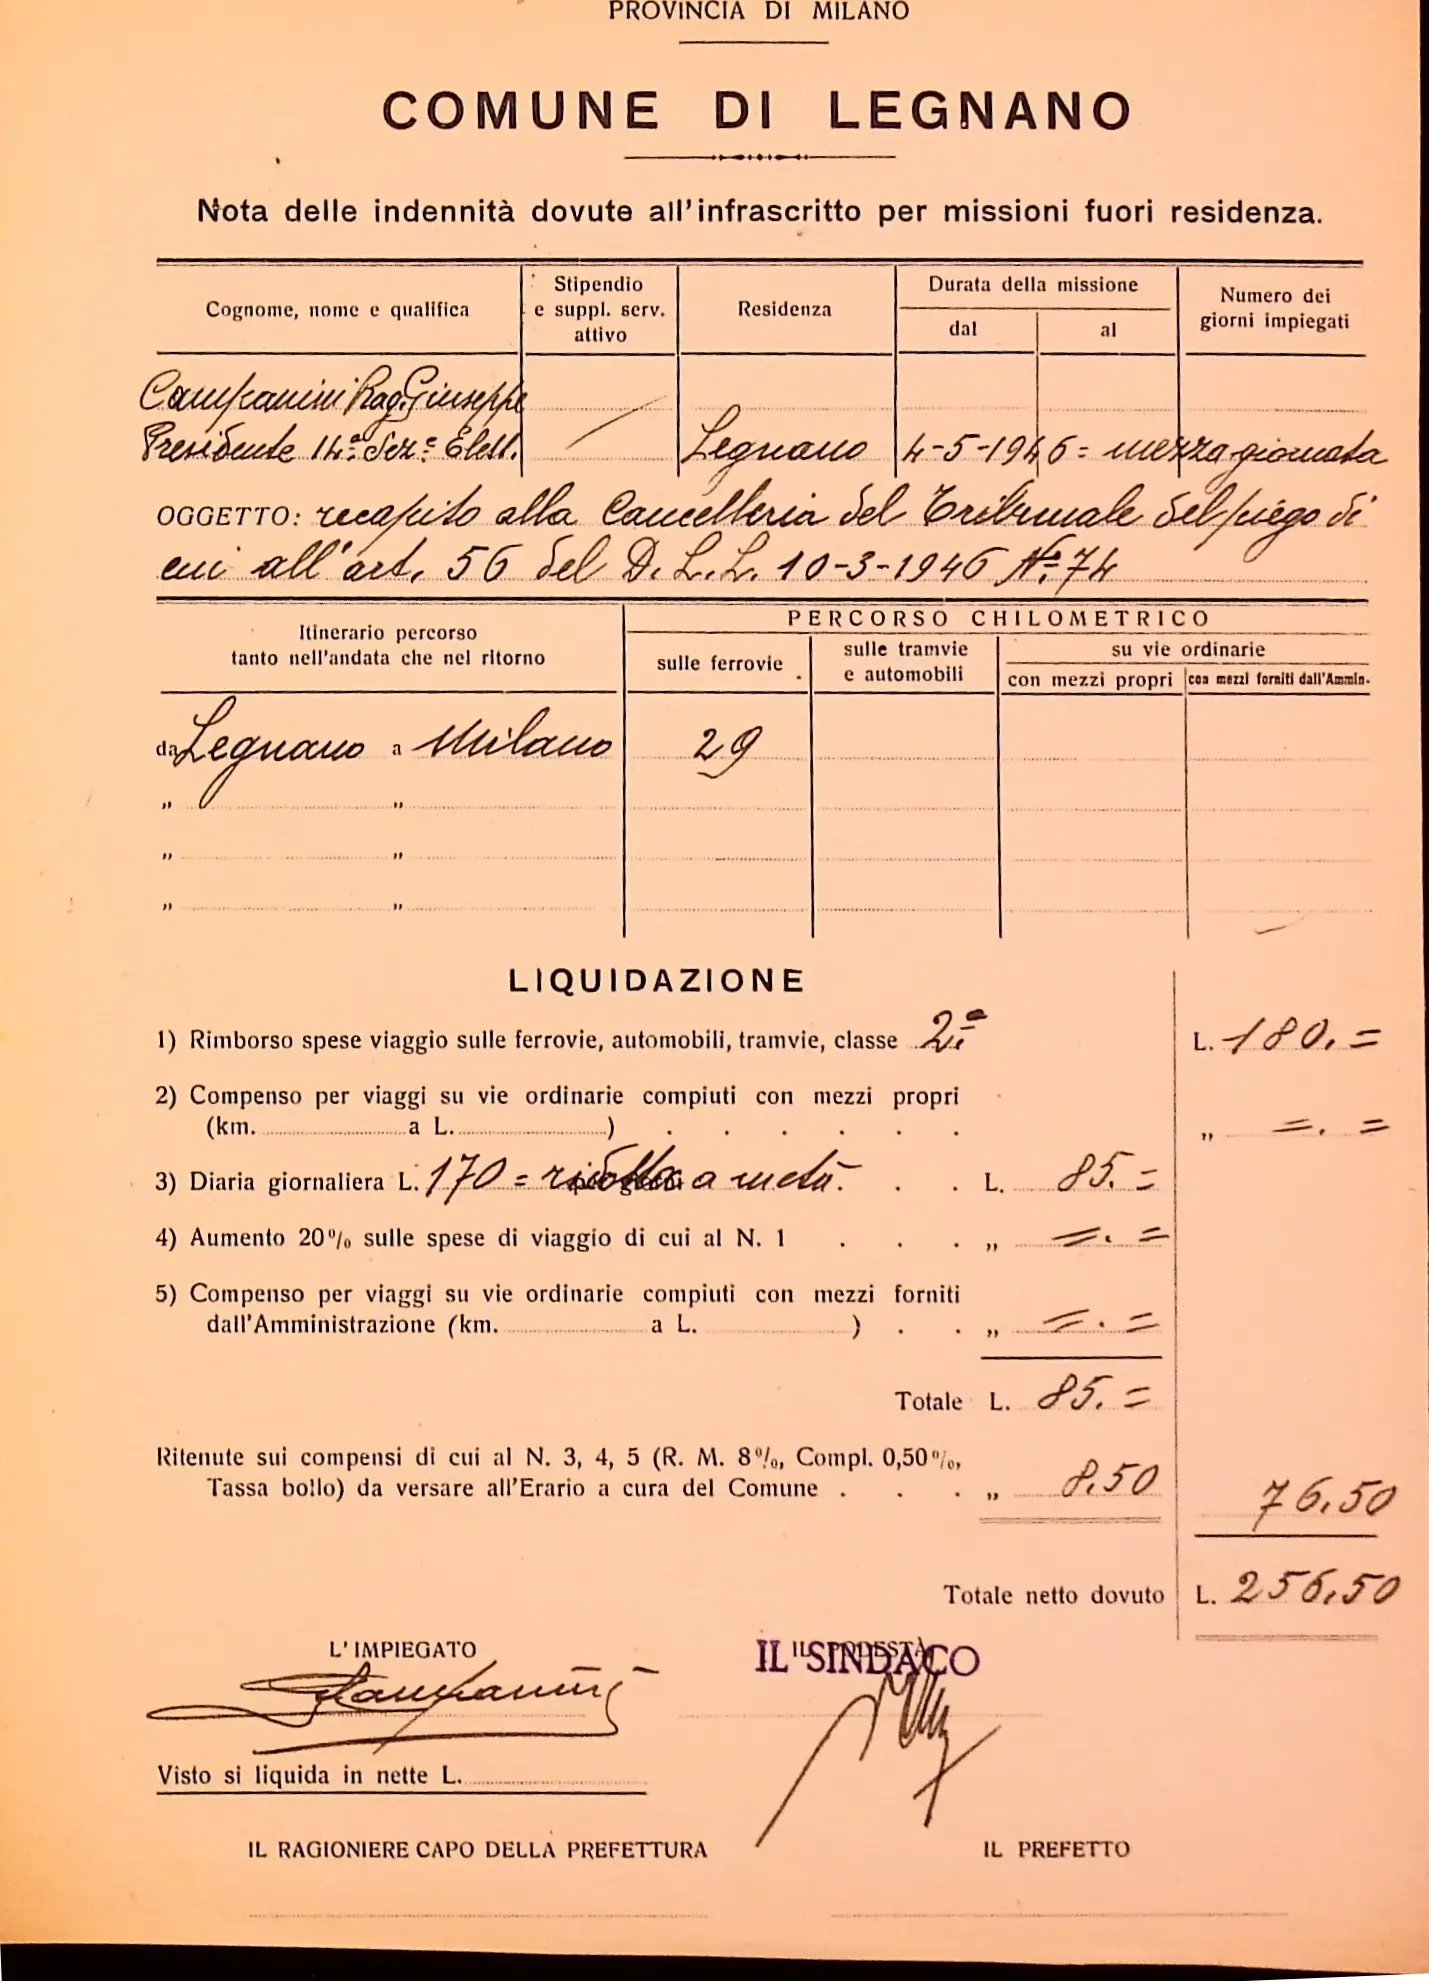 PROVINCIA DI MILANO
COMUNE DI LEGNANO
Nota delle indennità dovute all'infrascritto per missioni fuori residenza.
Cognome, nome e qualifica
Stipendio e suppl. serv. attivo
Residenza
Durata della missione
dal
al
Numero dei giorni impiegati
Campanini Rag. Giuseppe
Presidente 14ª Sez.e Elett. Legnano 4-5-1946 = mezza giornata
OGGETTO: recapito alla Cancelleria del Tribunale del piego di
cui all'art. 56 del D.L.L. 10-3-1946 Nº 74
Itinerario percorso
tanto nell'andata che nel ritorno
PERCORSO CHILOMETRICO
sulle ferrovie
sulle tramvie e automobili
su vie ordinarie
con mezzi propri
con mezzi forniti dall'Ammin.
da Legnano a Milano 29
" "
" "
" "
LIQUIDAZIONE
1) Rimborso spese viaggio sulle ferrovie, automobili, tramvie, classe 2.ª L. 180. =
2) Compenso per viaggi su vie ordinarie compiuti con mezzi propri
(km. a L. ) . . . . . . " =. =
3) Diaria giornaliera L. 170 = ridotta a metà. . . L. 85. =
4) Aumento 20% sulle spese di viaggio di cui al N. 1 . . . " =. =
5) Compenso per viaggi su vie ordinarie compiuti con mezzi forniti
dall'Amministrazione (km. a L. ) . . " =. =
Totale L. 85. =
Ritenute sui compensi di cui al N. 3, 4, 5 (R. M. 8%, Compl. 0,50%,
Tassa bollo) da versare all'Erario a cura del Comune . . . " 8.50 76.50
Totale netto dovuto L. 256.50
L'IMPIEGATO
IL PODESTÀ
IL SINDACO
Campanini
Visto si liquida in nette L.
IL RAGIONIERE CAPO DELLA PREFETTURA
IL PREFETTO